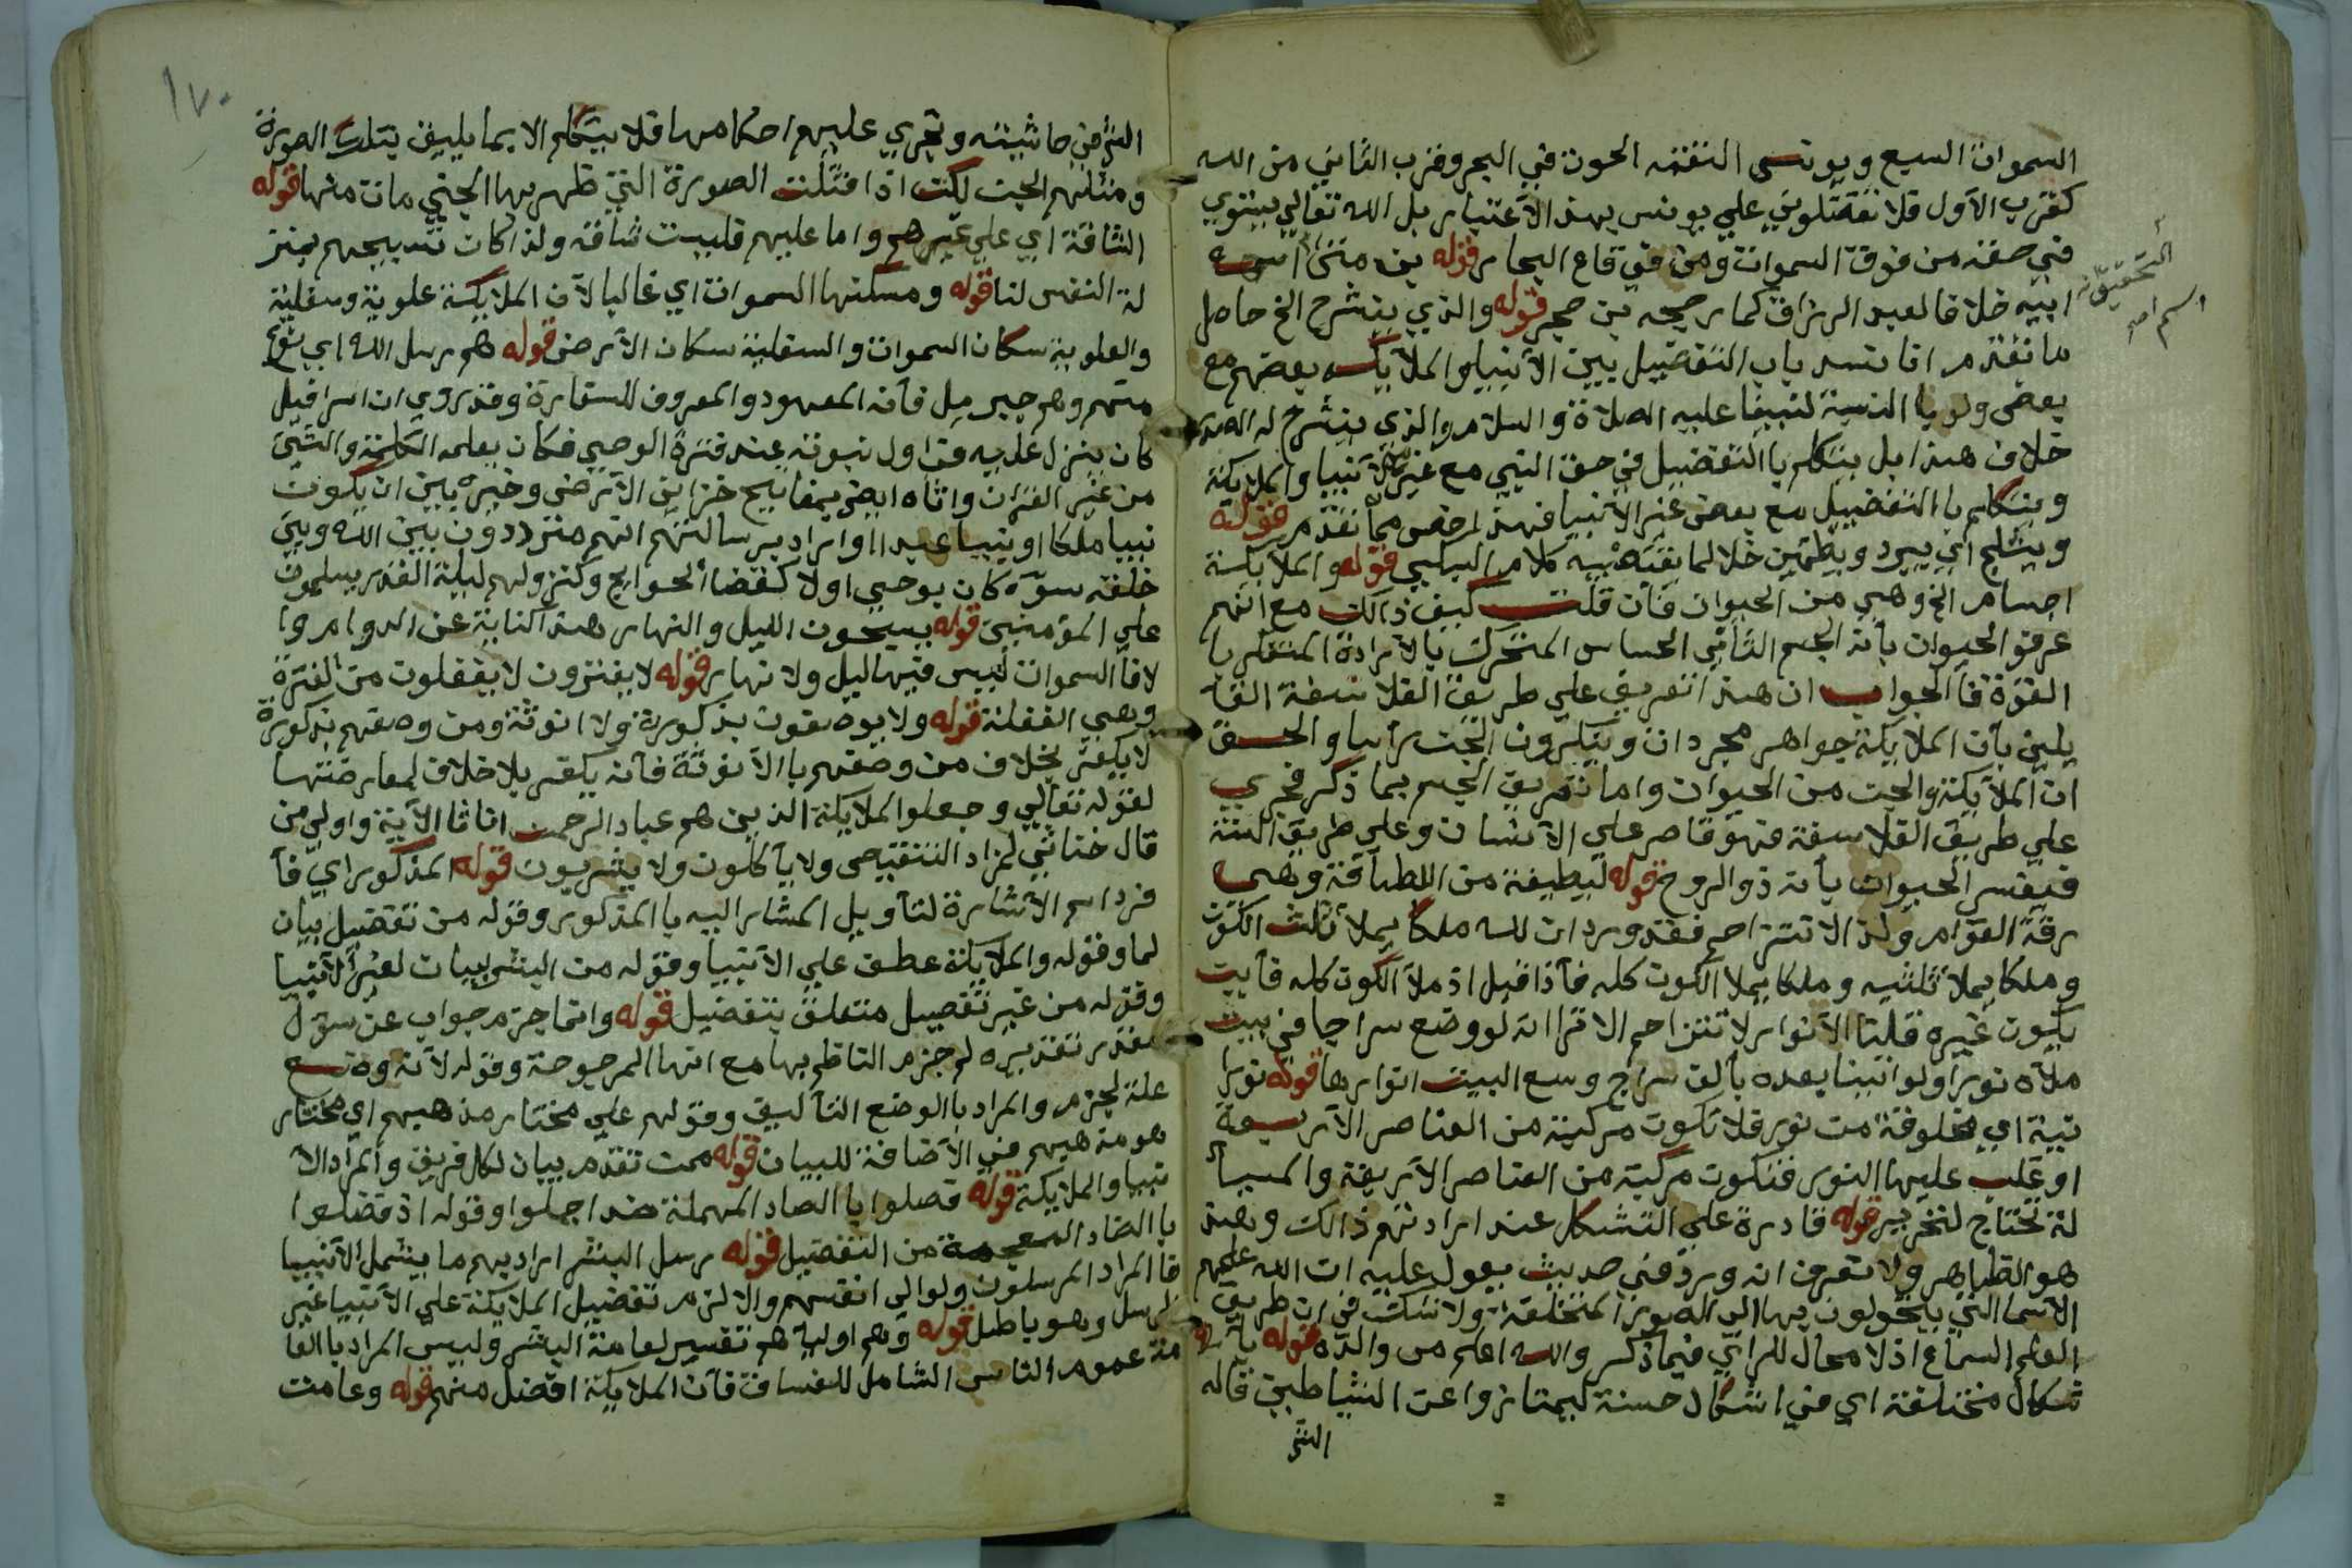 السموات السبع ويونس التقمه الحوت في البحر وقرب الثاني من الله
كقرب الأول فلا تفضلوني علي يونس بهذا الأعتبار بل الله تعالي يستوي
في حقه من فوق السموات ومن في قاع البحار قوله بن متي اسم
ابيه خلافا لعبد الرزاق كما رجحه بن حجر قوله والذي ينشرح الخ حاصل
ما تقدم انا نسد باب التفضيل بين الأنبيا والملايكة بعضهم مع
بعض ولو با النسبة لنبينا عليه الصلاة والسلام والذي ينشرح له الصدر
خلاف هذا بل يتكلم با التفضيل في حق النبي مع غيره الأنبيا والملايكة
ويتكلم با التفضيل مع بعض غير الأنبيا فهذا اخص مما تقدم قوله
ويثلج اي يبرد ويطمين خلافا لما يقتضيه كلام السبكي قوله والملايكة
اجسام الخ وهي من الحيوان فأن قلت كيف ذالك مع انهم
عرفو الحيوان بأنه الجسم النامي الحساس المتحرك با لأرادة المتفكر با
القوة فا الجواب ان هذا تعريف علي طريق الفلاسفة القا
يلين بأن الملايكة جواهر مجردات وينكرون الجن رأسا والحق
ان الملايكة والجن من الحيوان واما تعريف الجسم بما ذكر فجري
علي طريق الفلاسفة فهو قاصر علي الأنسان وعلي طريق السنة
فيفسر الحيوان بأنه ذو الروح قوله لطيفة من اللطافة وهي
رقة القوام ولذا لا تتزاحم فقد ورد ان لله ملكا يملأ ثلث الكون
وملكا يملأ ثلثيه وملكا يملأ الكون كله فأذا قيل اذ ملأ الكون كله فأين
يكون غيره قلنا الأنوار لا تتزاحم الا ترا انه لو وضع سراجا في بيت
ملأه نورا ولو اتينا بعده بألف سراج وسع البيت انوارها قوله نورا
نية اي مخلوقة من نور فلا تكون مركبة من العناصر الأربعة
او غلب عليها النور فتكون مركبة من العناصر الأربعة والمسأ
لة تحتاج لتحرير قوله قادرة علي التشكل عند ارادتهم ذالك وهذا
هو الظاهر ولا نعرف انه ورد في حديث يعول عليه ان الله علمهم
الأسما التي يتحولون بها الي الصور المختلفة ولا شك في ان طريق
العلم السماع اذ لا مجال للراي فيما ذكر والله اعلم قوله بأ
شكال مختلفة اي في اشكال حسنة ليمتازوا عن الشياطين قاله
الشر
التحقيق انه
اسم امه
١٧٠
الشرفي حاشيته وتجري عليهم احكامها فلا يتكلم الا بما يليق بتلك الصورة
ومثلهم الجن لكن اذا قتلت الصورة التي ظهر بها الجني مات منها قوله
الشاقة اي علي غيرهم واما عليهم فليست شاقة ولذا كان تسبيحهم بمنز
لة النفس لنا قوله ومسكنها السموات اي غالبا لأن الملايكة علوية وسفلية
والعلوية سكان السموات والسفلية سكان الأرض قوله هم رسل الله اي نوع
منهم وهم جبريل فأنه المعهود والمعروف للسفارة وقد روي ان اسرافيل
كان ينزل عليه في اول نبوته عند فترة الوحي فكان يعلمه الكلمة والشي
من غير القران واتاه ايضا بمفاتيح خزاين الأرض وخيره بين ان يكون
نبيا ملكا او نبيا عبدا او اراد برسالتهم انهم مترددون بين الله وبين
خلقه سوآ كان بوحي اولا كقضا الحوايج وكنزولهم ليلة القدر يسلمون
علي المؤمنين قوله يسبحون الليل والنهار هذا كناية عن الدوام وا
لا فا السموات ليس فيها ليل ولا نهار قوله لا يفترون لا يغفلون من الفترة
وهي الغفلة قوله ولا يوصفون بذكورة ولا انوثة ومن وصفهم بذكورة
لا يكفر بخلاف من وصفهم با الأنوثة فأنه يكفر بلا خلاف لمعارضتها
لقوله تعالي وجعلوا الملايكة الذين هم عباد الرحمن اناثا الآية واولي من
قال خناثي لمزاد التنقيص ولا يأكلون ولا يشربون قوله المذكور اي فأ
فرد اسم الأشارة لتأويل المشار اليه با المذكور وقوله من تفضيل بيان
لما وقوله والملايكة عطف علي الأنبيا وقوله من البشر بيان لغير الأنبيا
وقوله من غير تفصيل متعلق بتفضيل قوله وانما جزم جواب عن سوال
مقدر تقديره لم جزم الناظم بها مع انها المرجوحة وقوله لأنه وضع
علة لجزم والمراد با الوضع التأليف وقولهم علي مختار مذهبهم اي مختار
هو مذهبهم في الأضافة للبيان قوله ممن تقدم بيان لكل فريق والمراد الأ
نبيا والملايكة قوله فصلوا با الصاد المهملة ضد اجملوا وقوله اذ فضلوا
با الضاد المعجمة من التفضيل قوله رسل البشر اراد بهم ما يشمل الأنبيا
فا المراد المرسلون ولو الي انفسهم والا لزم تفضيل الملايكة علي الأنبيا غير
الرسل وهو باطل قوله وهم اوليا هم تفسير لعامة البشر وليس المراد با العا
مة عموم الناس الشامل للفساق فأن الملايكة افضل منهم قوله وعامت